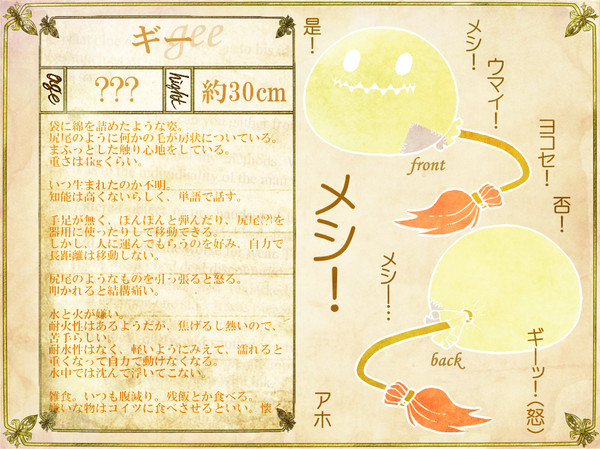 ギー
gee
age
???
hight
約30cm
袋に綿を詰めたような姿。
尻尾のように何かの毛が房状についている。
まふっとした触り心地をしている。
重さは4kgくらい。
いつ生まれたのか不明。
知能は高くないらしく、単語で話す。
手足が無く、ぽんぽんと弾んだり、尻尾(?)を
器用に使ったりして移動できる。
しかし、人に運んでもらうのを好み、自力で
長距離は移動しない。
尻尾のようなものを引っ張ると怒る。
叩かれると結構痛い。
水と火が嫌い。
耐火性はあるようだが、焦げるし熱いので、
苦手らしい。
耐水性はなく、軽いようにみえて、濡れると
重くなって自力で動けなくなる。
水中では沈んで浮いてこない。
雑食。いつも腹減り。残飯とか食べる。
嫌いな物はコイツに食べさせるといい。懐
是!
メシ!
ウマイ!
ヨコセ!
否!
front
メシ!
メシ…
back
ギーッ!(怒)
アホ